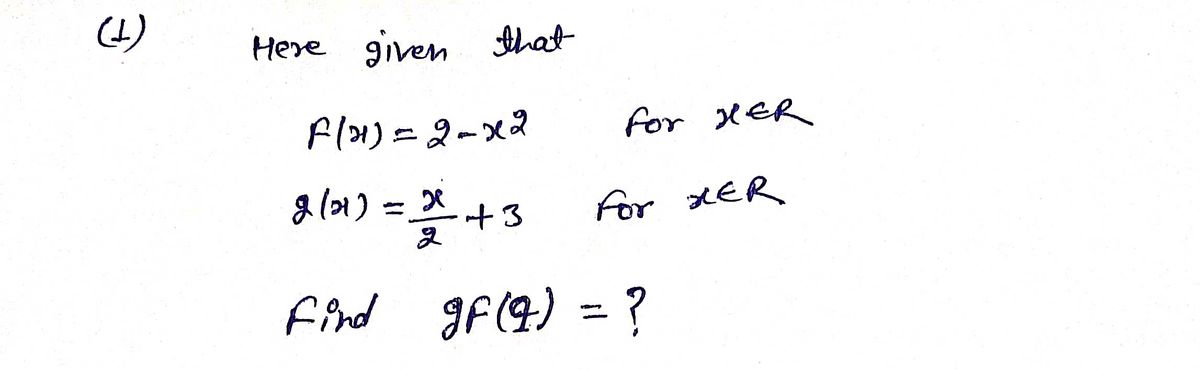 (1) Here given that
f(x) = 2-x2 for x∈R
g(x) = x/2 + 3 for x∈R
find gf(q) = ?